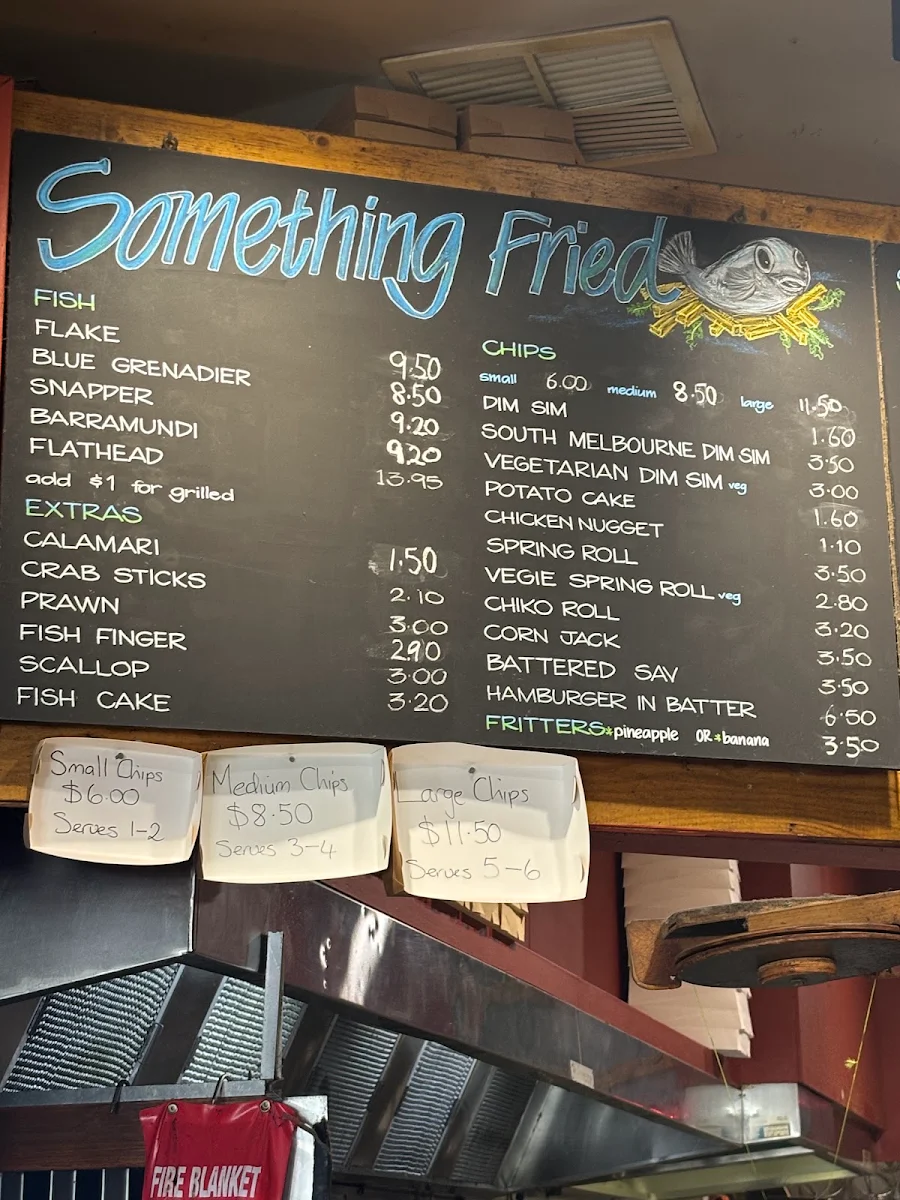 Something Fried
FISH
FLAKE 9.50
BLUE GRENADIER 8.50
SNAPPER 9.20
BARRAMUNDI 9.20
FLATHEAD 13.95
add $1 for grilled
EXTRAS
CALAMARI 1.50
CRAB STICKS 2.10
PRAWN 3.00
FISH FINGER 2.90
SCALLOP 3.00
FISH CAKE 3.20
CHIPS
small 6.00 medium 8.50 large 11.50
DIM SIM 1.60
SOUTH MELBOURNE DIM SIM 3.50
VEGETARIAN DIM SIM veg 3.00
POTATO CAKE 1.60
CHICKEN NUGGET 1.10
SPRING ROLL 3.50
VEGIE SPRING ROLL veg 2.80
CHIKO ROLL 3.20
CORN JACK 3.50
BATTERED SAV 3.50
HAMBURGER IN BATTER 6.50
FRITTERS *pineapple OR *banana 3.50
Small Chips
$6.00
Serves 1-2
Medium Chips
$8.50
Serves 3-4
Large Chips
$11.50
Serves 5-6
FIRE BLANKET